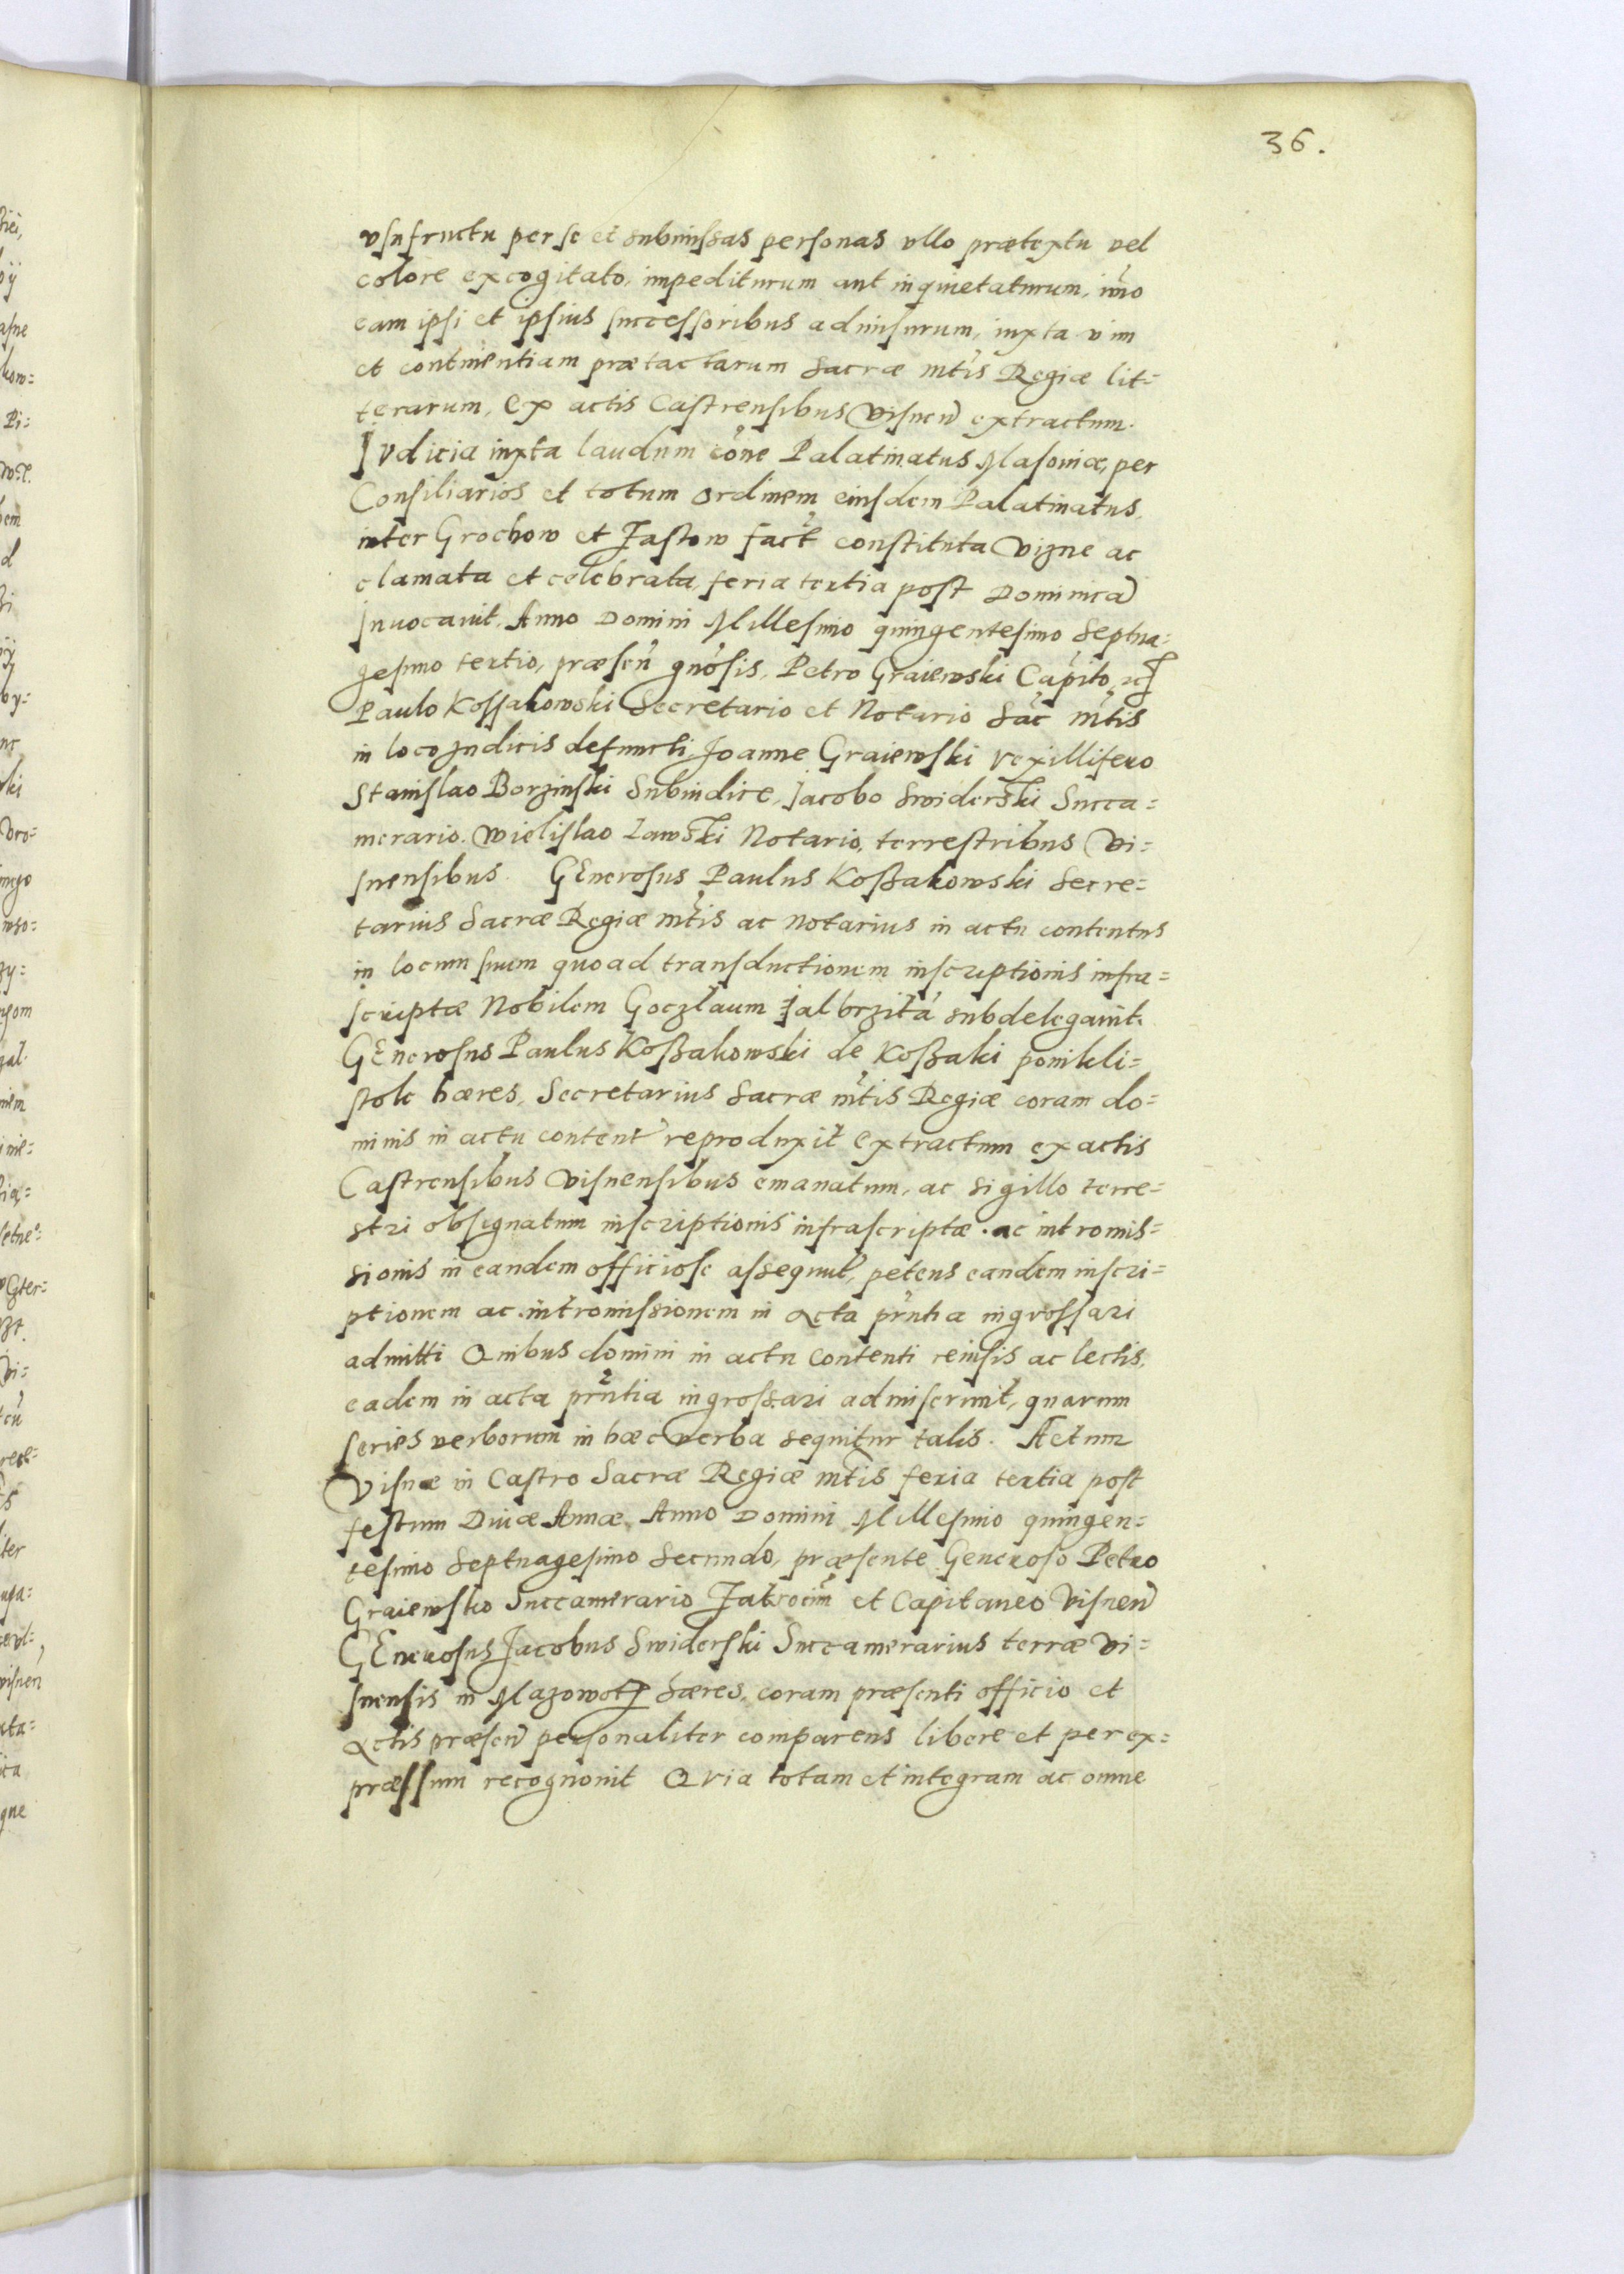 36.
vsufructu per se et submissas personas vllo prætextu vel
colore excogitato, impediturum aut inquietaturum, imo
eam ipsi et ipsius successoribus admissurum, iuxta vim
et continentiam prætactarum Sacræ mtis Regiæ lit=
terarum, Ex actis Castrensibus Visnen extractum.
Ivdicia iuxta laudum cone Palatinatus Masoviæ, per
Consiliarios et totum ordinem eiusdem Palatinatus,
inter Grochow et Jastow fact constituta Vizne ac
clamata et celebrata feria tertia post Dominica
Invocavit. Anno Domini Millesimo quingentesimo Septua=
gesimo tertio, præsen gnosis, Petro Graiewski Capito,
Paulo Kossakowski Secretario et Notario Sac mtis
in loco Judicis defuncti Joanne Graiewski Vexillifero
Stanislao Borzinski Subiudice, Jacobo Swiderski Succa=
merario. Wielislao Lawski Notario, terrestribus Vi=
snensibus. GEnerosus Paulus Koßakowski Secre=
tarius Sacræ Regiæ mtis ac Notarius in actu contentus
in locum suum quoad transductionem inscriptionis infra=
scriptæ Nobilem Goczlaum Jalbrzita subdelegavit.
GEnerosus Paulus Koßakowski de Koßaki ponikli=
stok hæres, Secretarius Sacræ mtis Regiæ coram do=
minis in actu content reproduxit Extractum ex actis
Castrensibus Visnensibus emanatum, ac sigillo terre=
stri obsignatum inscriptionis infrascriptæ. ac intromis=
sionis in eandem officiose assequut, petens eandem inscri=
ptionem ac intromissionem in acta prntia ingrossari
admitti Quibus domini in actu contenti reuisis ac lectis,
eadem in acta prntia ingrossari admiserunt, quarum
series verborum in hæc verba sequitur talis. Actum
Visnæ in Castro Sacræ Regiæ mtis feria tertia post
festum Diuæ Annæ Anno Domini Millesimo quingen=
tesimo Septuagesimo Secundo, præsente Generoso Petro
Graiewsko Succamerario et Capitaneo Visnen
GEnerosus Jacobus Swiderski Succamerarius terræ Vi=
snensis in hæres, coram præsenti officio et
actis præsen personaliter comparens libere et per ex=
præssum recognovit Qvia totam et integram ac omne